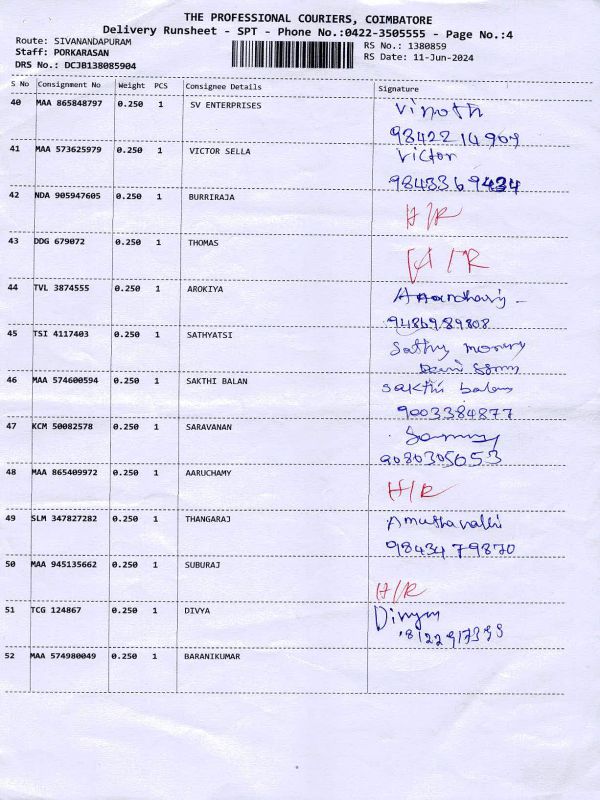 THE PROFESSIONAL COURIERS, COIMBATORE
Delivery Runsheet - SPT - Phone No.:0422-3505555 - Page No.:4
Route: SIVANANDAPURAM
RS No.: 1380859
Staff: PORKARASAN
RS Date: 11-Jun-2024
DRS No.: DCJB138085904
S No Consignment No Weight PCS Consignee Details Signature
40 MAA 865848797 0.250 1 SV ENTERPRISES Vinoth
9842214909
41 MAA 573625979 0.250 1 VICTOR SELLA Victor
9843369434
42 NDA 905947605 0.250 1 BURRIRAJA H/R
43 DDG 679072 0.250 1 THOMAS H/R
44 TVL 3874555 0.250 1 AROKIYA
9486989808
45 TSI 4117403 0.250 1 SATHYATSI Sathy
46 MAA 574600594 0.250 1 SAKTHI BALAN Sakthi balan
9003384877
47 KCM 50082578 0.250 1 SARAVANAN
9080305053
48 MAA 865409972 0.250 1 AARUCHAMY H/R
49 SLM 347827282 0.250 1 THANGARAJ Amuthavalli
9843479870
50 MAA 945135662 0.250 1 SUBURAJ H/R
51 TCG 124867 0.250 1 DIVYA Divya
52 MAA 574980049 0.250 1 BARANIKUMAR